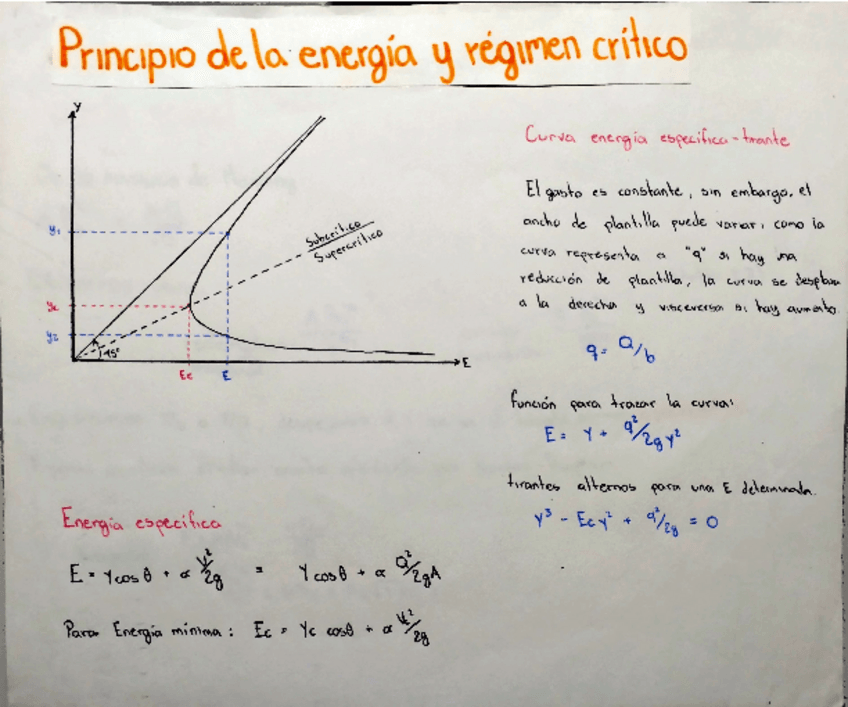 Principio de la energía y régimen crítico
Y
Curva energía especifica - tirante
El gasto es constante, sin embargo, el
ancho de plantilla puede variar, como la
curva representa a "q" si hay una
reducción de plantilla, la curva se desplaza
a la derecha y visceversa si hay aumento.
q = Q/b
función para trazar la curva:
E = Y + q²/2gy²
tirantes alternos para una E determinada.
Y³ - Ec y² + q²/2g = 0
y₁
Subcrítico
Supercrítico
yc
y₂
45°
E
Ec
E
Energía especifica
E = Y cos θ + α V²/2g = Y cos θ + α Q²/2gA
Para Energía mínima: Ec = Yc cos θ + α Vc²/2g